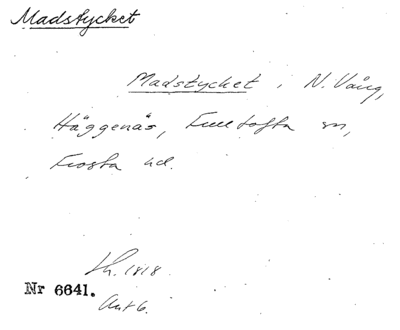 Madstycket
Madstycket, N. Vång,
Häggenäs, Fulltofta sn,
Frosta hd.
Lh. 1818.
Nr 6641.
Akt 6.